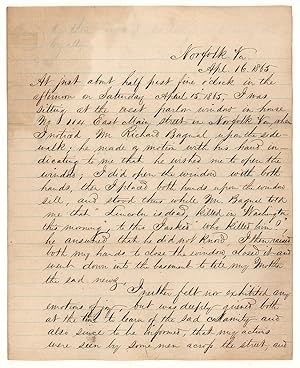 Norfolk Va,
Apl. 16. 1865.
At just about half past five o'clock in the
afternoon on Saturday April 15. 1865, I was
sitting at the west parlor window in house
No East Main street in Norfolk Va, when
I noticed Mr. Richard Bagnal upon the side-
walk; he made a motion with his hand in-
dicating to me that he wished me to open the
window; I did open the window with both
hands, then I placed both hands upon the window
sill, and stood thus while Mr. Bagnal told
me that "Lincoln is dead, killed in Washington
this morning," to this I asked "who killed him?"
he answered that he did not know. I then raised
both my hands to close the window, closed it and
went down into the basement to tell my Mother
the sad news.
I neither felt nor exhibited any
emotions of joy, but was deeply grieved both
at the time to learn of the sad calamity and
also since to be informed, that my actions
were seen by some men across the street, and